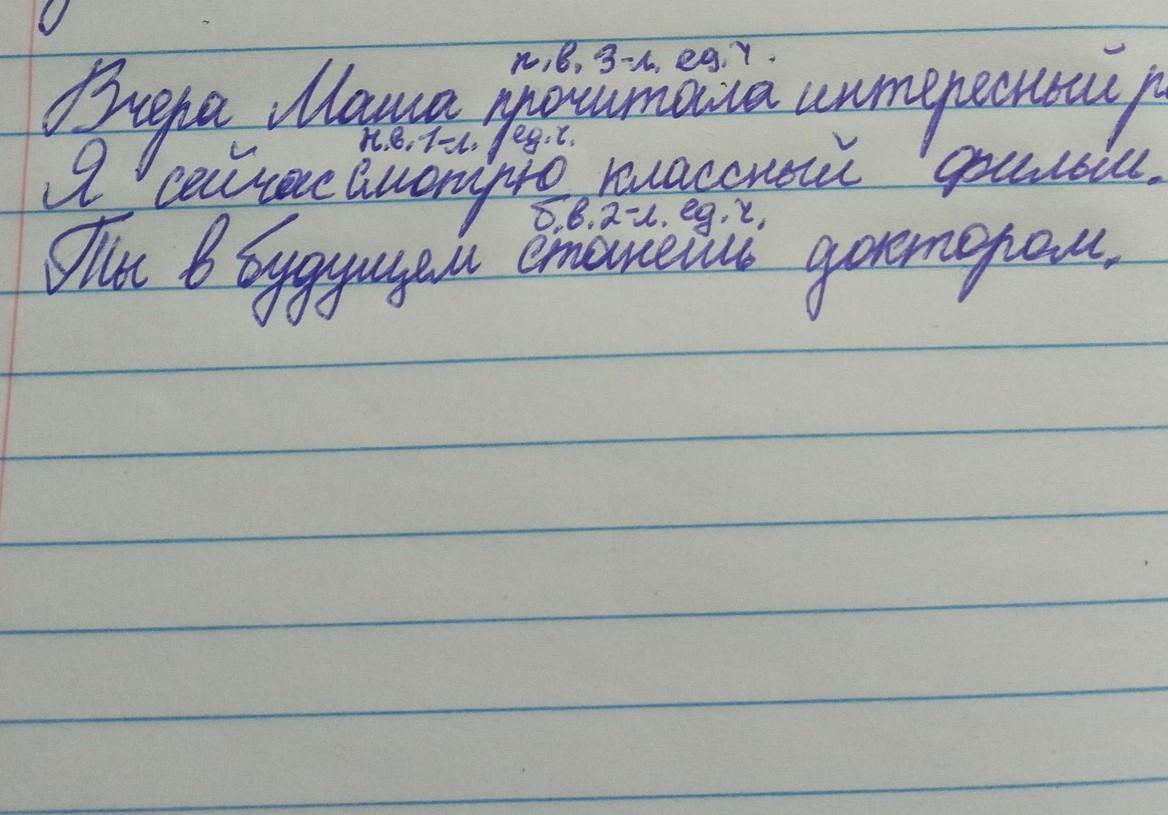 п.в. 3-л. ед.ч.
Вчера Маша прочитала интересный
н.в. 1-л. ед.ч.
Я сейчас смотрю классный фильм.
б.в. 2-л. ед.ч.
Ты в будущем станешь доктором.